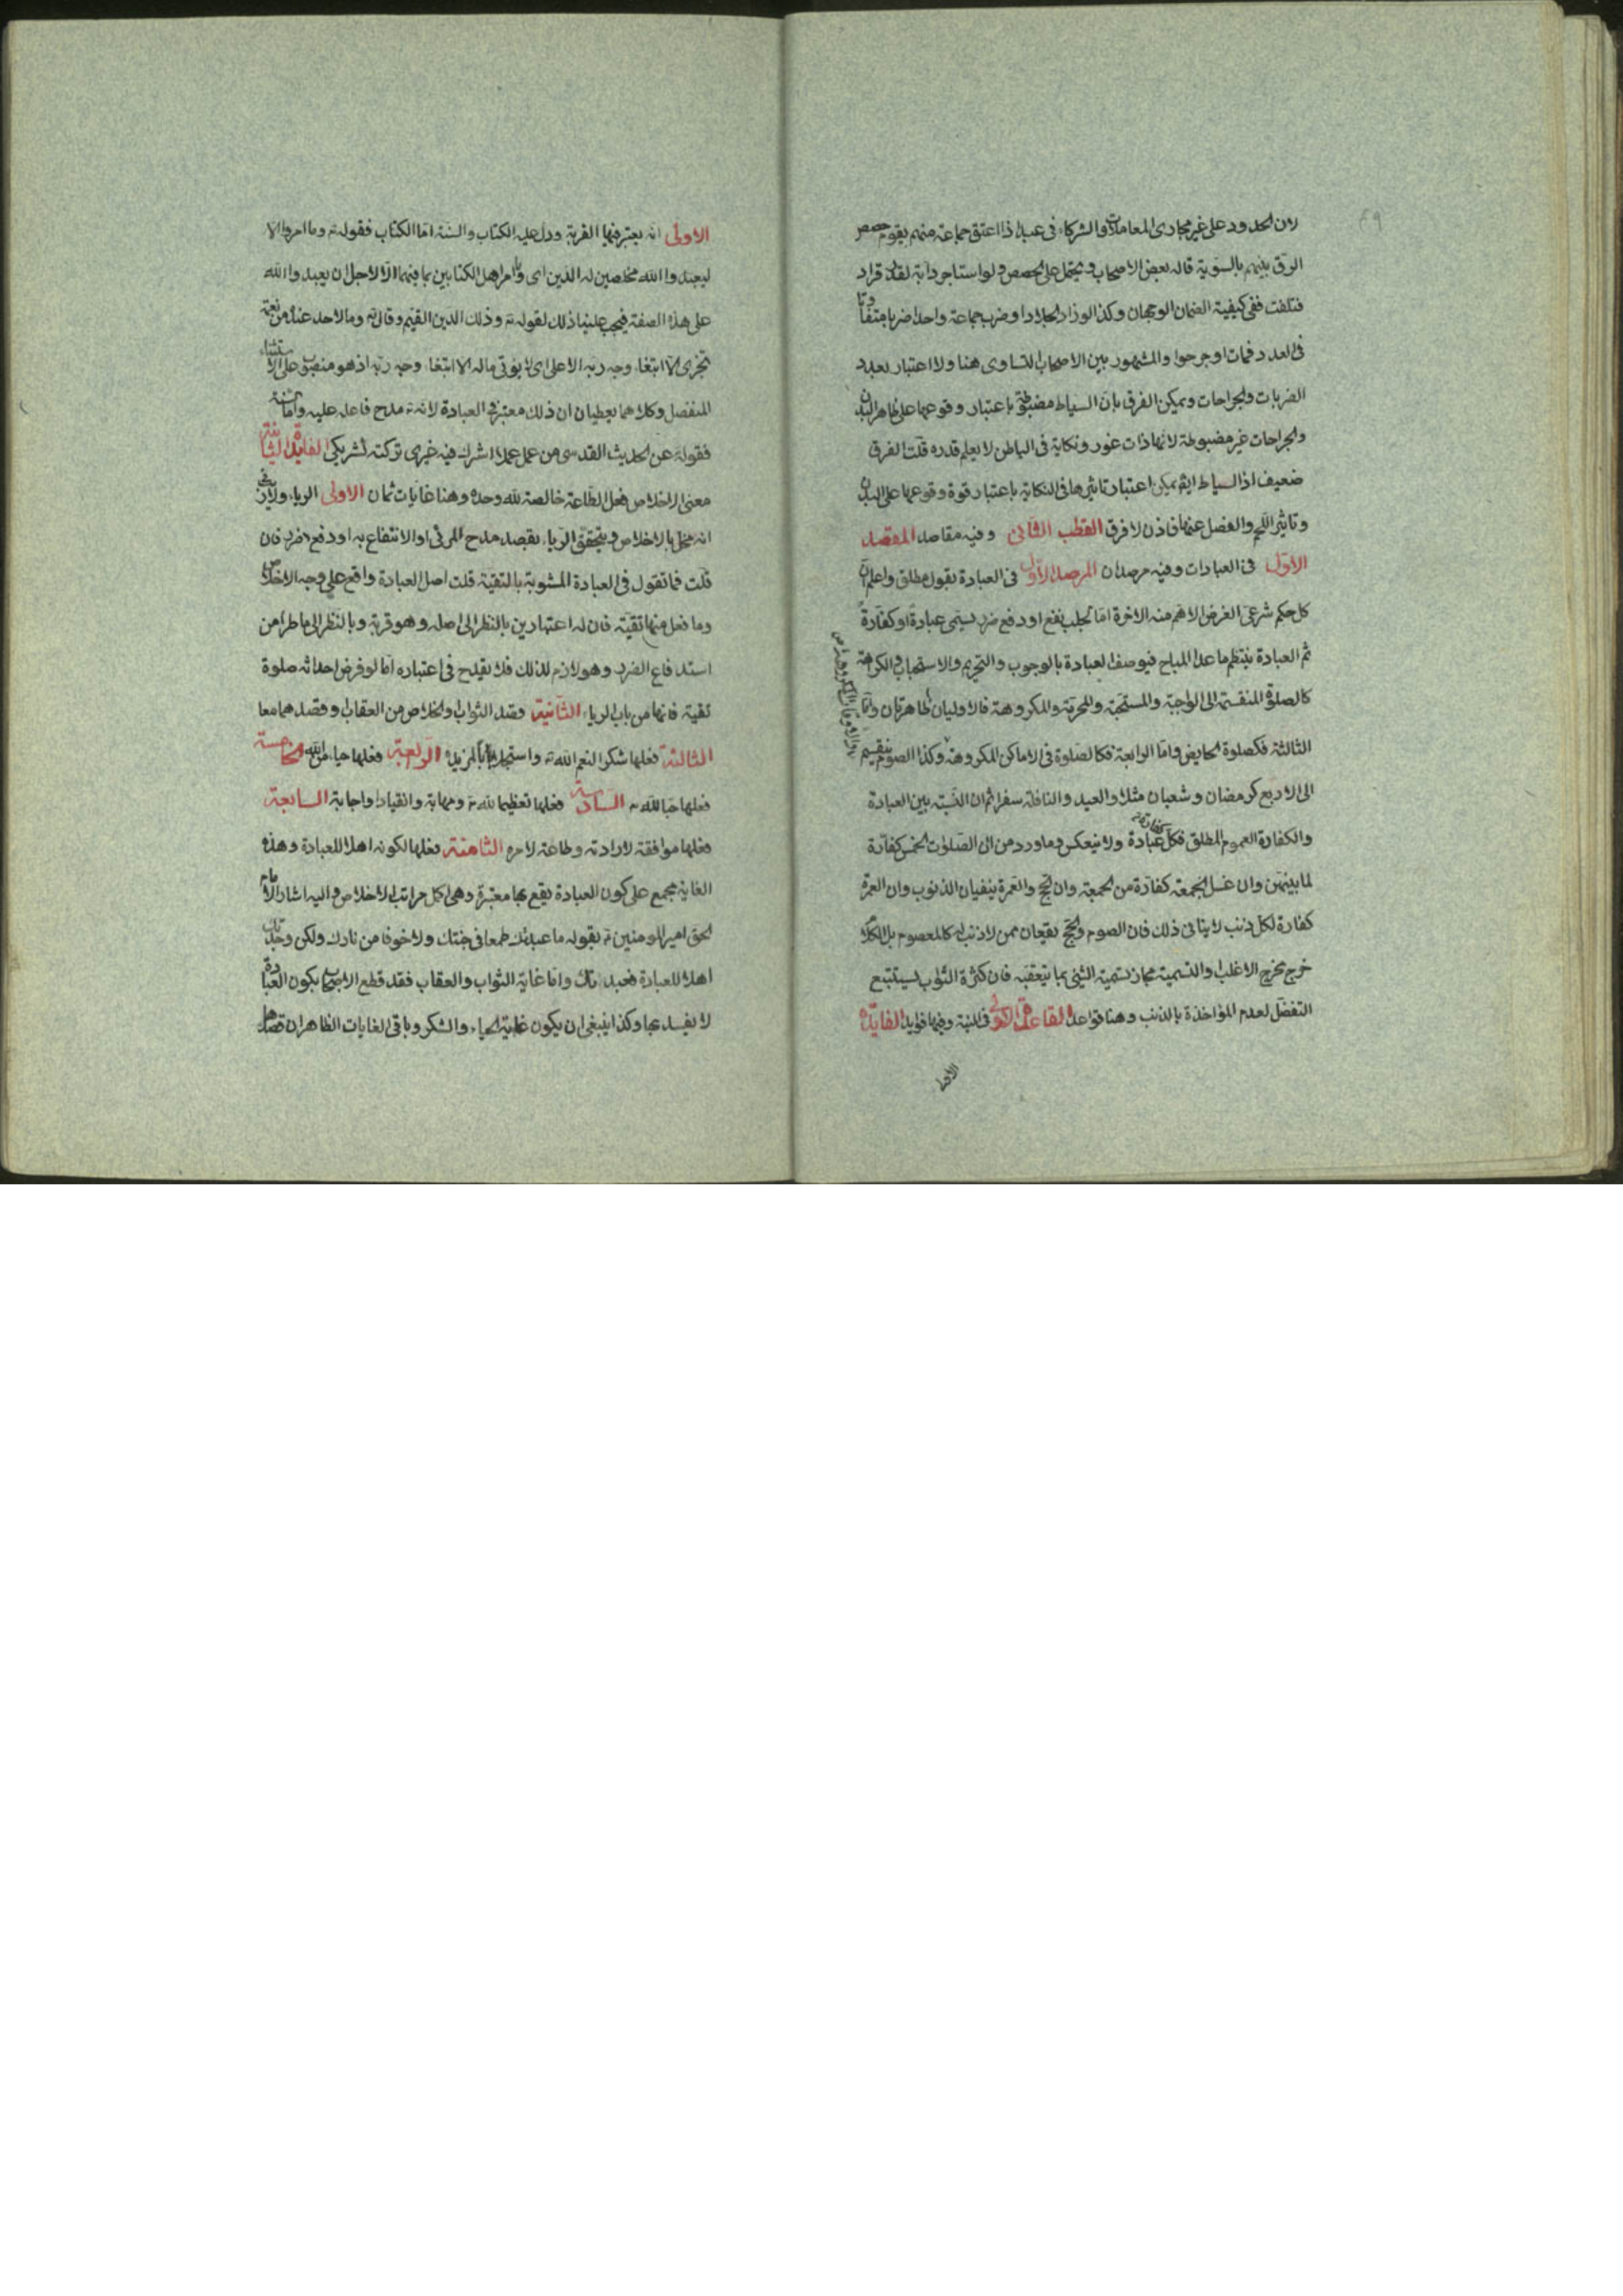 لان الحدود على غير مجارى المعاملات والشركاء فى عبد اذا اعتق جماعة منهم يقوم حصص
الرق بينهم بالسوية قاله بعض الاصحاب ويحتمل على الحصص ولو استاجر دابة لقدر فزاد
فتلفت ففى كيفية الضمان الوجهان وكذا لو زاد الجلاد او ضرب جماعة واحدا ضربا متفاوتا
فى العدد فمات او جرحوا والمشهور بين الاصحاب التساوى هنا ولا اعتبار بعدد
الضربات والجراحات ويمكن الفرق بان السياط مضبوطة باعتبار وقوعها على ظاهر البدن
والجراحات غير مضبوطة لانها ذات غور ونكاية فى الباطن لا يعلم قدره قلت الفرق
ضعيف اذ السياط ايضا يمكن اعتبار تاثيرها فى النكاية باعتبار قوة وقوعها على البدن
وتاثير اللحم والفصل عنها فاذن لا فرق القطب الثانى وفيه مقاصد المقصد
الاول فى العبادات وفيه مرصدان المرصد الاول فى العبادة بقول مطلق واعلم ان
كل حكم شرعى الغرض الاهم منه الاخرة اما لجلب نفع او دفع ضرر يسمى عبادة او كفارة
ثم العبادة ينتظم ما عدا المباح فيوصف العبادة بالوجوب والتحريم والاستحباب والكراهة
كالصلوة المنقسمة الى الواجبة والمستحبة والمحرمة والمكروهة فالاوليان ظاهرتان واما
الثالثة فكصلوة الحايض واما الرابعة فكالصلوة فى الاماكن المكروهة وكذا الصوم ينقسم
الى الاربع كرمضان وشعبان مثلا والعيد والنافلة سفرا ثم ان النسبة بين العبادة
والكفارة العموم المطلق فكل كفارة عبادة ولا ينعكس وما ورد من ان الصلوات الخمس كفارة
لما بينهن وان غسل الجمعة كفارة من الجمعة وان الحج والعمرة ينفيان الذنوب وان العمرة
كفارة لكل ذنب لا ينافى ذلك فان الصوم والحج يقعان ممن لا ذنب له كالمعصوم بل الكلام
خرج مخرج الاغلب والتسمية مجاز تسمية الشئ بما يتعقبه فان كثرة الثواب يستتبع
التفضل لعدم المؤاخذة بالذنب وهنا قواعد القاعدة الاولى فى النية وفيها فوايد الفايدة
الاولى
الاولى انه يعتبر فيها القربة ودل عليه الكتاب والسنة اما الكتاب فقوله تع وما امروا الا
ليعبدوا الله مخلصين له الدين اى وما امر اهل الكتابين بما فيهما الا لاجل ان يعبدوا الله
على هذه الصفة فيجب علينا ذلك لقوله تع وذلك الدين القيم وقال تع وما لاحد عنده من نعمة
تجزى الا ابتغاء وجه ربه الاعلى اى لا يؤتى ماله الا ابتغاء وجه ربه اذ هو منصوب على الاستثناء
المنفصل وكلاهما يعطيان ان ذلك معتبر فى العبادة لانه تع مدح فاعله عليه واما السنة
فقوله عن الحديث القدسى من عمل عملا اشرك فيه غيرى تركته لشريكى الفايدة الثانية
معنى الاخلاص فعل الطاعة خالصة لله وحده وهنا غايات ثمان الاولى الرياء ولا ريب فى
انه مخل بالاخلاص ويتحقق الرياء بقصد مدح المرئى او الانتفاع به او دفع ضرره فان
قلت فما تقول فى العبادة المشوبة بالتقية قلت اصل العبادة واقع على وجه الاخلاص
وما فعل منها تقية فان له اعتبارين بالنظر الى اصله وهو قربة وبالنظر الى ما طرأ من
استدفاع الضرر وهو لازم لذلك فلا يقدح فى اعتباره اما لو فرض احداثه صلوة
تقية فانها من باب الرياء الثانية قصد الثواب والخلاص من العقاب وقصدهما معا
الثالثة فعلها شكرا لنعم الله تع واستجلابا لمزيده الرابعة فعلها حياء من الله الخامسة
فعلها حبا لله تع السادسة فعلها تعظيما لله تع ومهابة وانقيادا واجابة السابعة
فعلها موافقة لارادته وطاعة لامره الثامنة فعلها لكونه اهلا للعبادة وهذه
الغاية مجمع على كون العبادة يقع بها معتبرة وهى اكمل مراتب الاخلاص واليه اشار الامام
الحق امير المومنين ع بقوله ما عبدتك طمعا فى جنتك ولا خوفا من نارك ولكن وجدتك
اهلا للعبادة فعبدتك واما غاية الثواب والعقاب فقد قطع الاصحاب بكون العبادة
لا يفسد بها وكذا ينبغى ان يكون غاية الحياء والشكر وباقى الغايات الظاهر ان قصدها